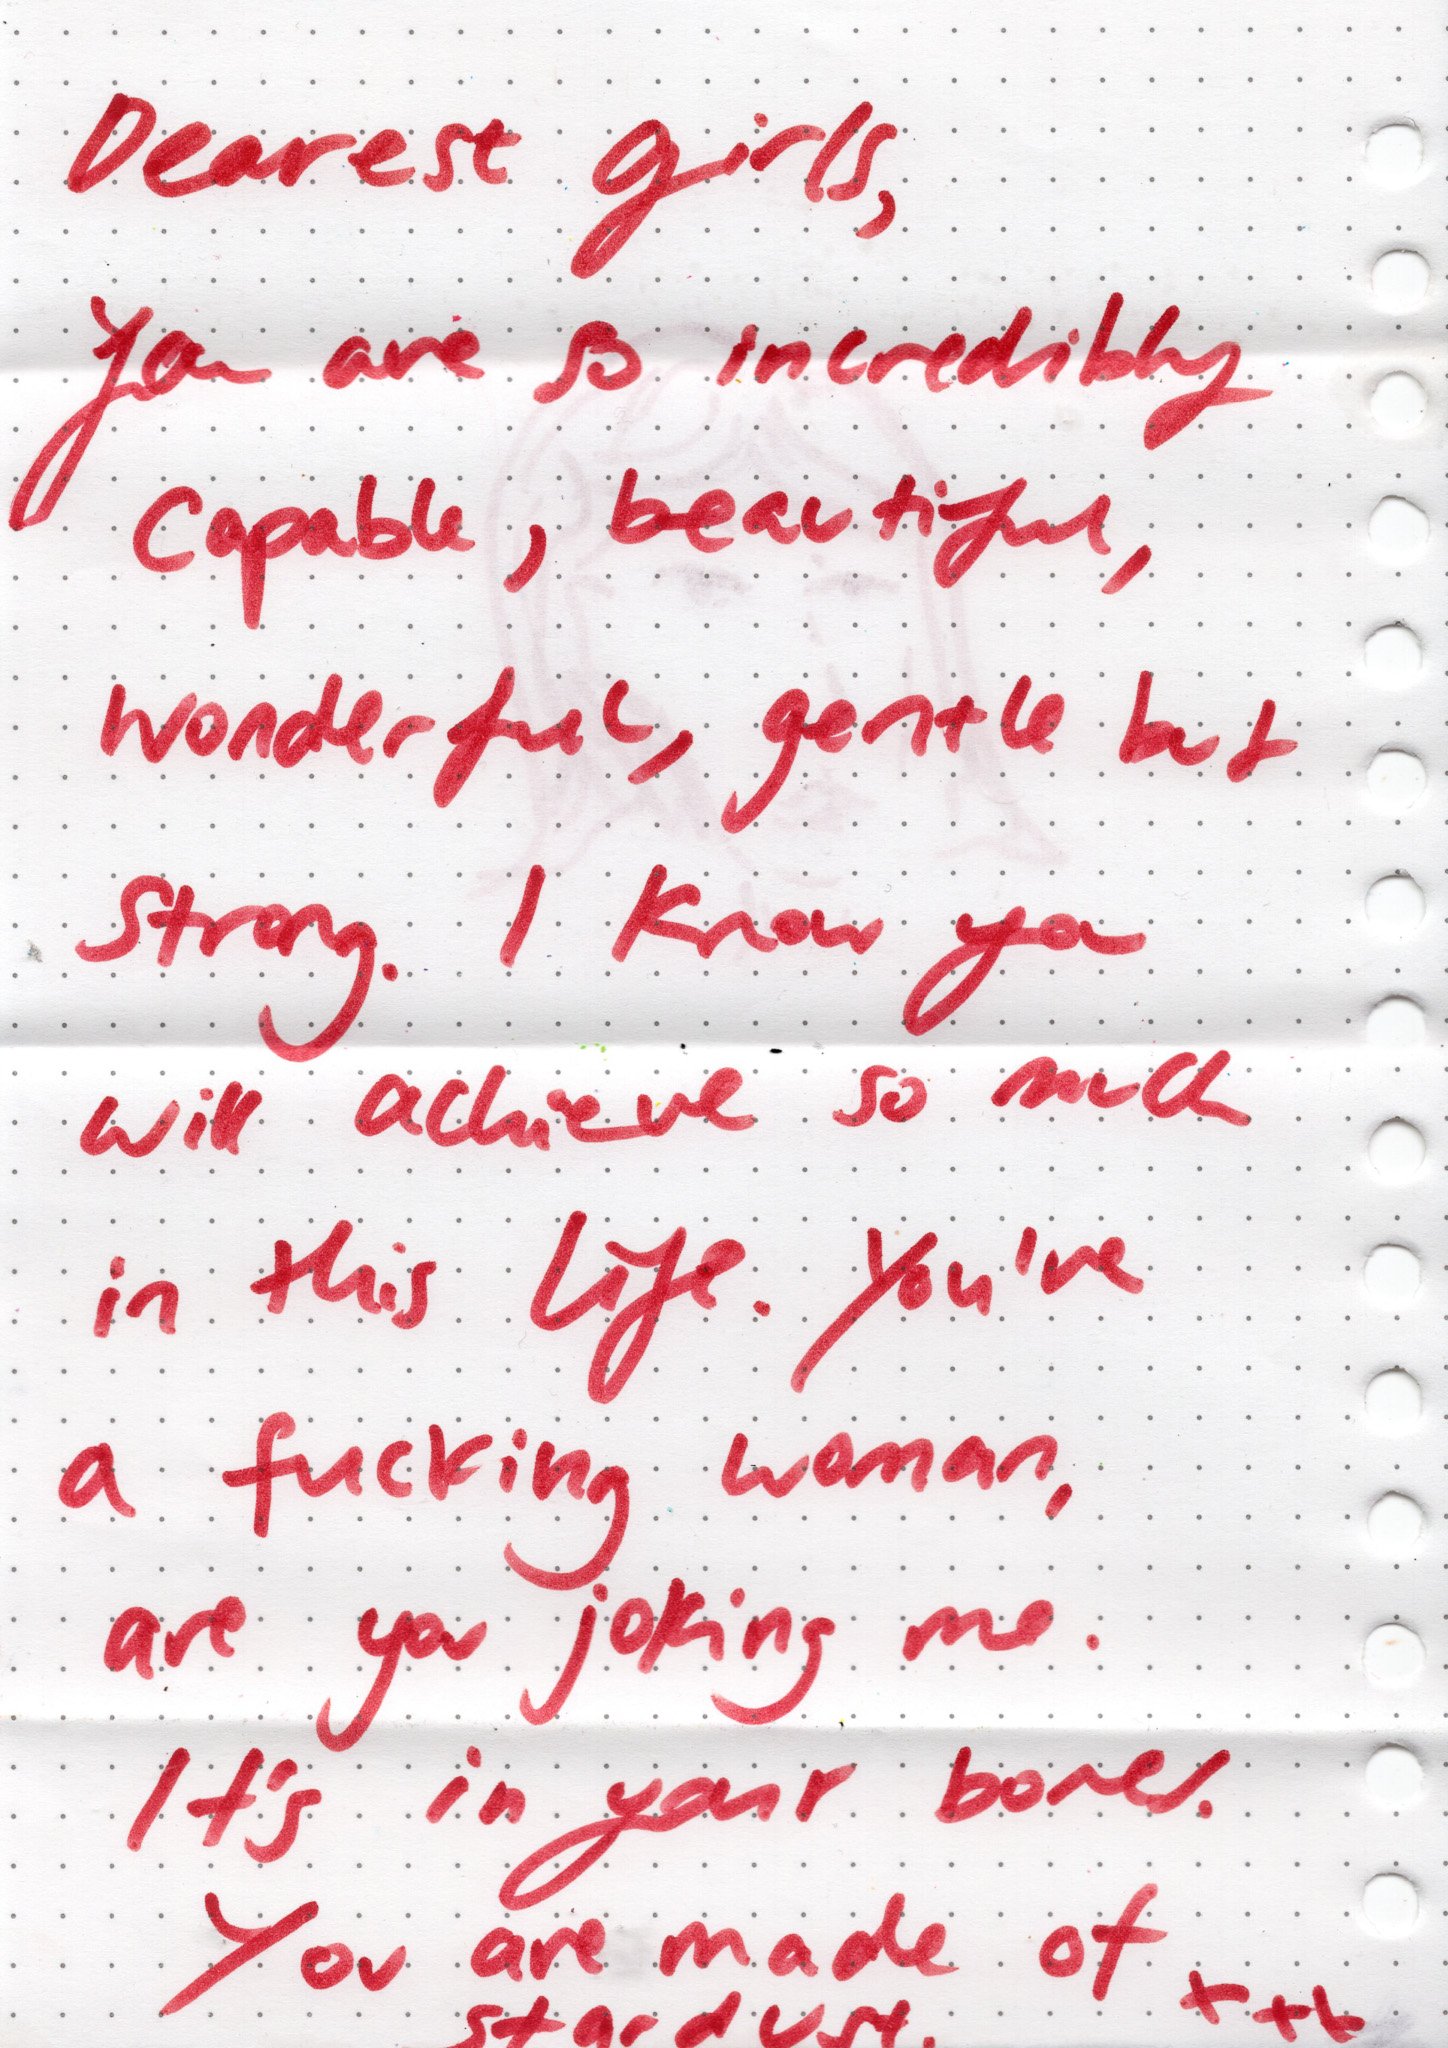 Dearest girls,
You are so incredibly
capable, beautiful,
wonderful, gentle but
strong. I know you
will achieve so much
in this life. You've
a fucking woman,
are you joking me.
It's in your bones.
You are made of
stardust. xxx